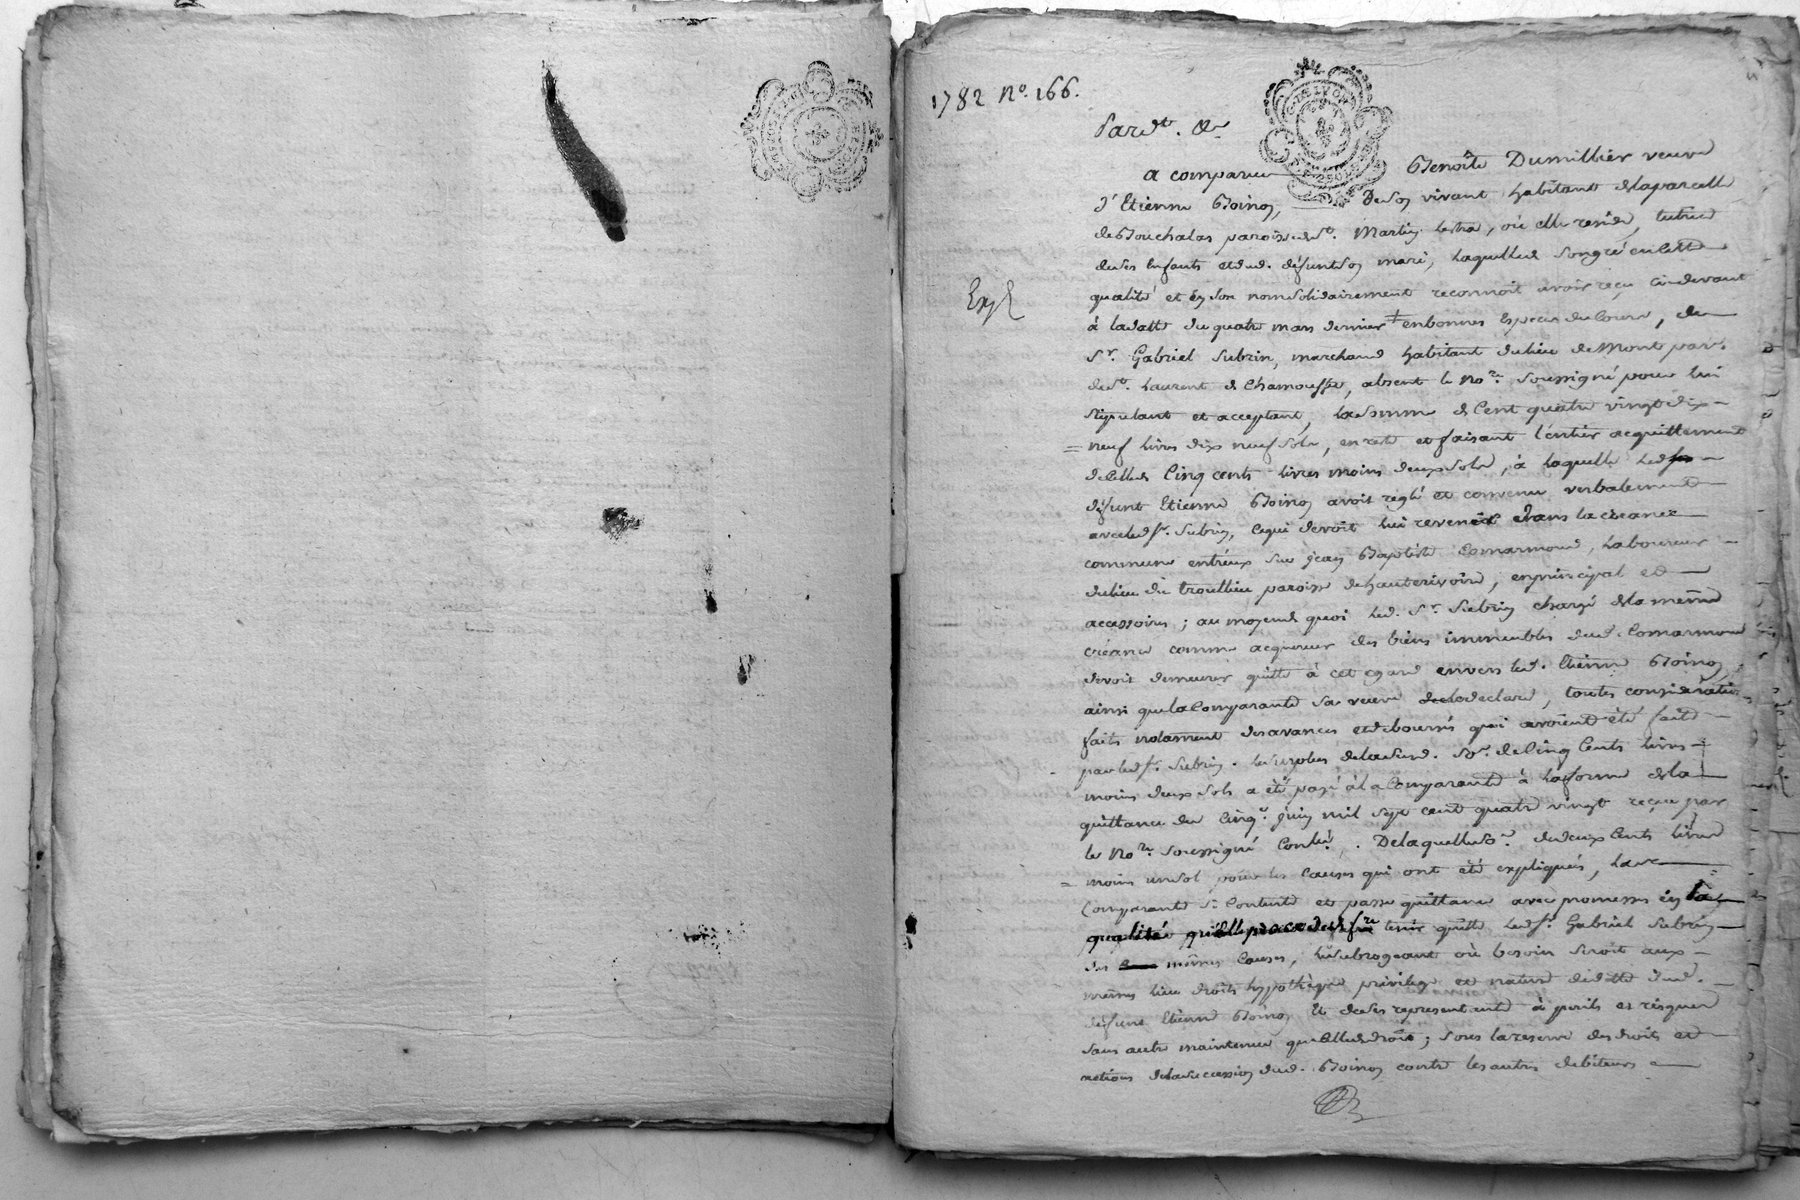 1782 No. 166.
Pardt. &c
a comparu Benoîte Dumillier veuve
d'Etienne Boinon, De son vivant habitant de la parcelle
de Bouchalas paroisse de St. Martin lestra, où elle reside, tutrice
de ses Enfants et dud. défunt son mari, laquelle de son gré en cette
qualité et en son nom solidairement reconnoit avoir reçu ci devant
à la datte du quatre mars dernier + en bonnes Especes de Cours, de
Sr. Gabriel Subrin, marchand habitant du lieu de Mont parr.
de St. Laurent de Chamousset, absent le No.re soussigné pour lui
stipulant et acceptant, la somme de Cent quatre vingt dix
= neuf livres dix neuf sols, en reste et faisant l'entier acquittement
de celle de Cinq cents livres moins deux sols, à laquelle led.
défunt Etienne Boinon avoit reglé et convenu verbalement
avec led. sr. Subrin, ce qui devoit lui revenir dans la creance
commune entr'eux sur jean Baptiste Comarmond, Laboureur
du lieu du trouillieu paroisse de hauterivoire, en principal et
accessoires ; au moyen de quoi led. Sr. Subrin chargé de la même
créance comme acquereur des biens immeubles dud. Comarmond
devoit demeurer quitte à cet egard envers led. Etienne Boinon,
ainsi que la Comparante sa veuve le declare, toutes considerations
faites notament des avances et debourrés qui avoient été faits
par led. sr. Subrin. le surplus de la susd. So.e de Cinq Cents livres
moins deux sols a été payé à la Comparante à la forme de la
quittance du Cinq.e juin mil sept cent quatre vingt reçue par
le No.re soussigné Contlé. De laquelle So.e de deux Cents livres
= moins un sol pour les Causes qui ont été expliqués, la
Comparante se Contente et passe quittance avec promesses en la
qualité qu'elle procede de fre tenir quitte led. sr. Gabriel Subrin
des mêmes Causes, le subrogeant où besoin seroit aux
mêmes lieu droits hyppotheque privilege et nature de dette dud.
défunt Etienne Boinon Et de ses representants à perils et risques
sans autre maintenue que celle de droit ; sous la reserve des droits et
actions de la succession dud. Boinon contre les autres debiteurs